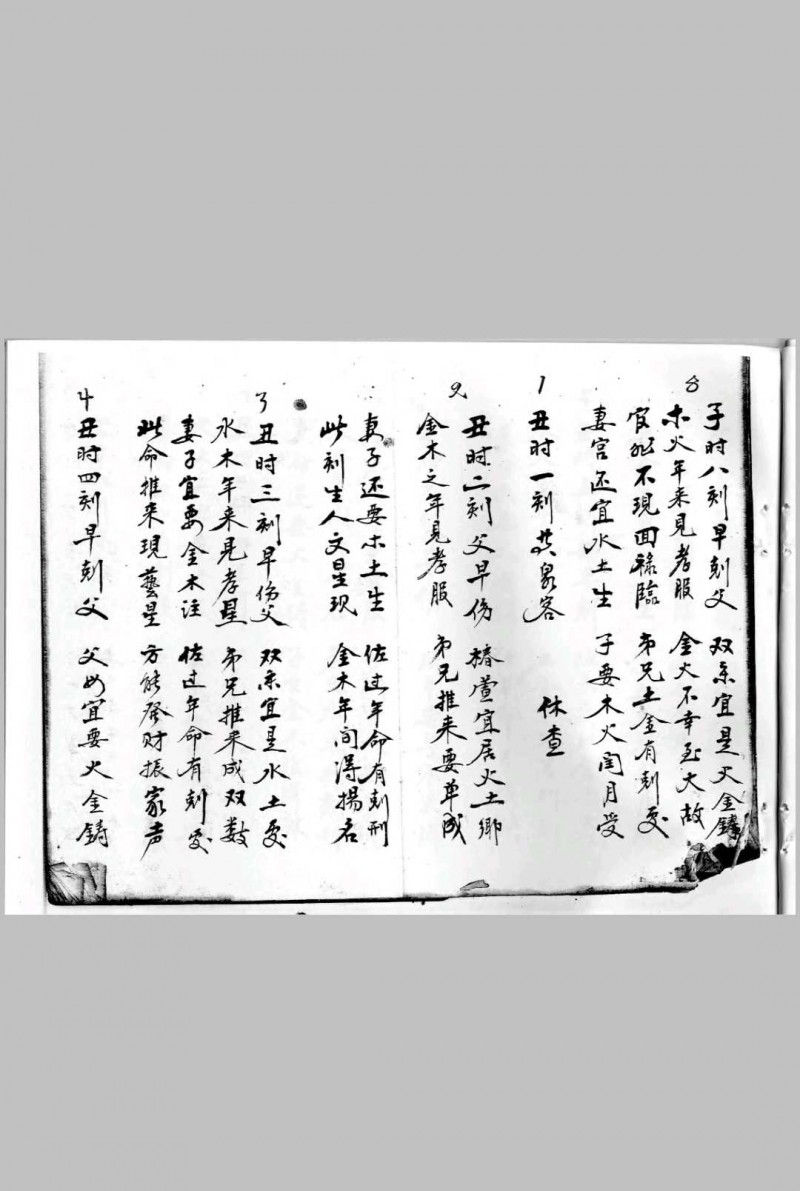 8
子时八刻早剋父 双亲宜是火金鑄
木火年来見孝服 金火不幸至大故
官非不現回祿臨 弟兄土金有刻受
妻宫还宜水土生 子要木火闰月受
1
丑时一刻黄泉客 休查
2
丑时二刻父早伤 椿萱宜居火土鄉
金木之年見孝服 弟兄推来要单成
妻子还要木土生 佐过年命有剋刑
此刻生人文星现 金木年间得揚名
3
丑时三刻早伤父 双亲宜是水土受
水木年来見孝星 弟兄推来成双数
妻子宜要金木注 佐过年命有剋受
此命推来現藝星 方能發财振家声
4
丑时四刻早剋父 父母宜要火金鋳